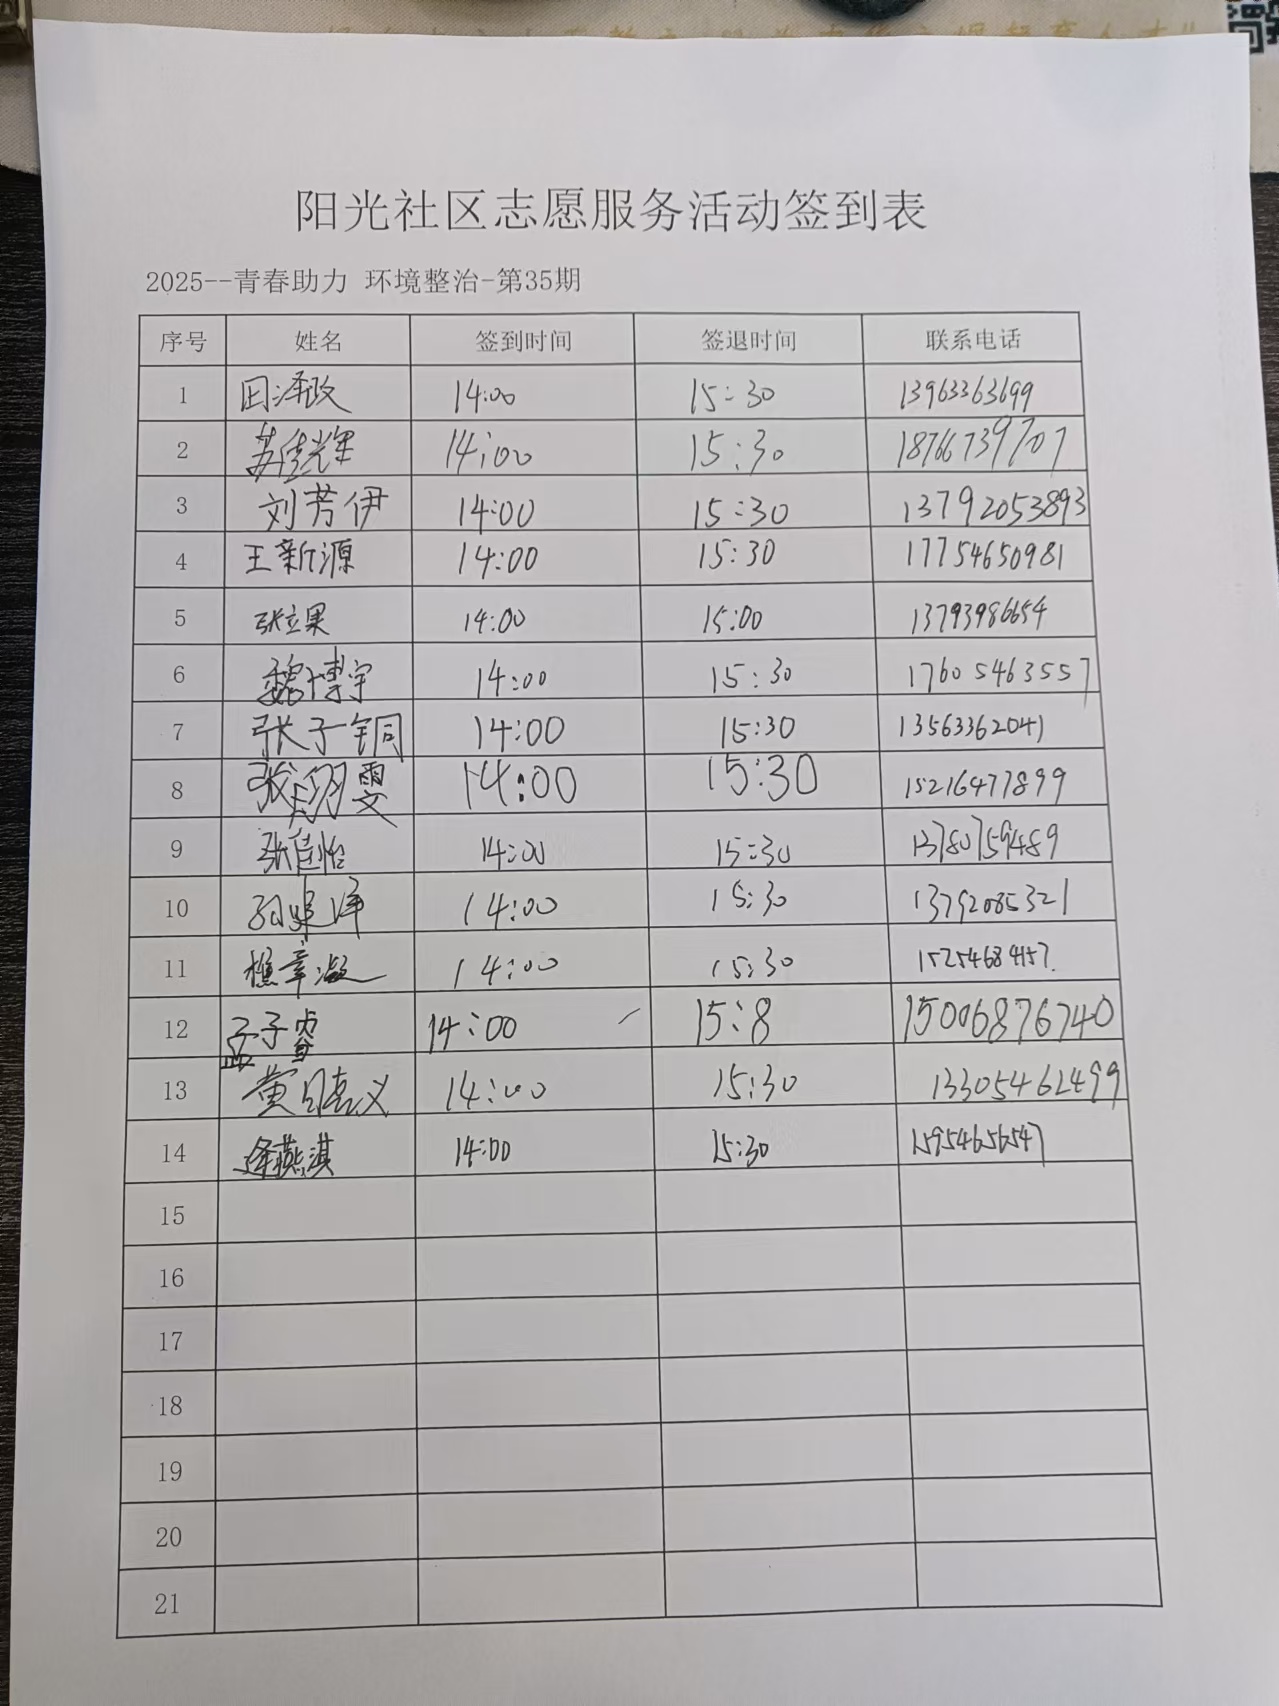 阳光社区志愿服务活动签到表
2025--青春助力 环境整治-第35期
序号 姓名 签到时间 签退时间 联系电话
1 田泽政 14:00 15:30 13963363699
2 苏佳辉 14:00 15:30 18766739707
3 刘芳伊 14:00 15:30 13792053893
4 王新源 14:00 15:30 17754650981
5 张立果 14:00 15:00 13793986654
6 魏博宇 14:00 15:30 17605463557
7 张子铜 14:00 15:30 13563362041
8 张翊雯 14:00 15:30 15216477899
9 张佳怡 14:00 15:30 13780759489
10 14:00 15:30 13792085321
11 14:00 15:30 15254684157.
12 孟子睿 14:00 15:8 15006876740
13 黄嘉义 14:00 15:30 13305462499
14 逄燕淇 14:00 15:30 15954656547
15
16
17
18
19
20
21